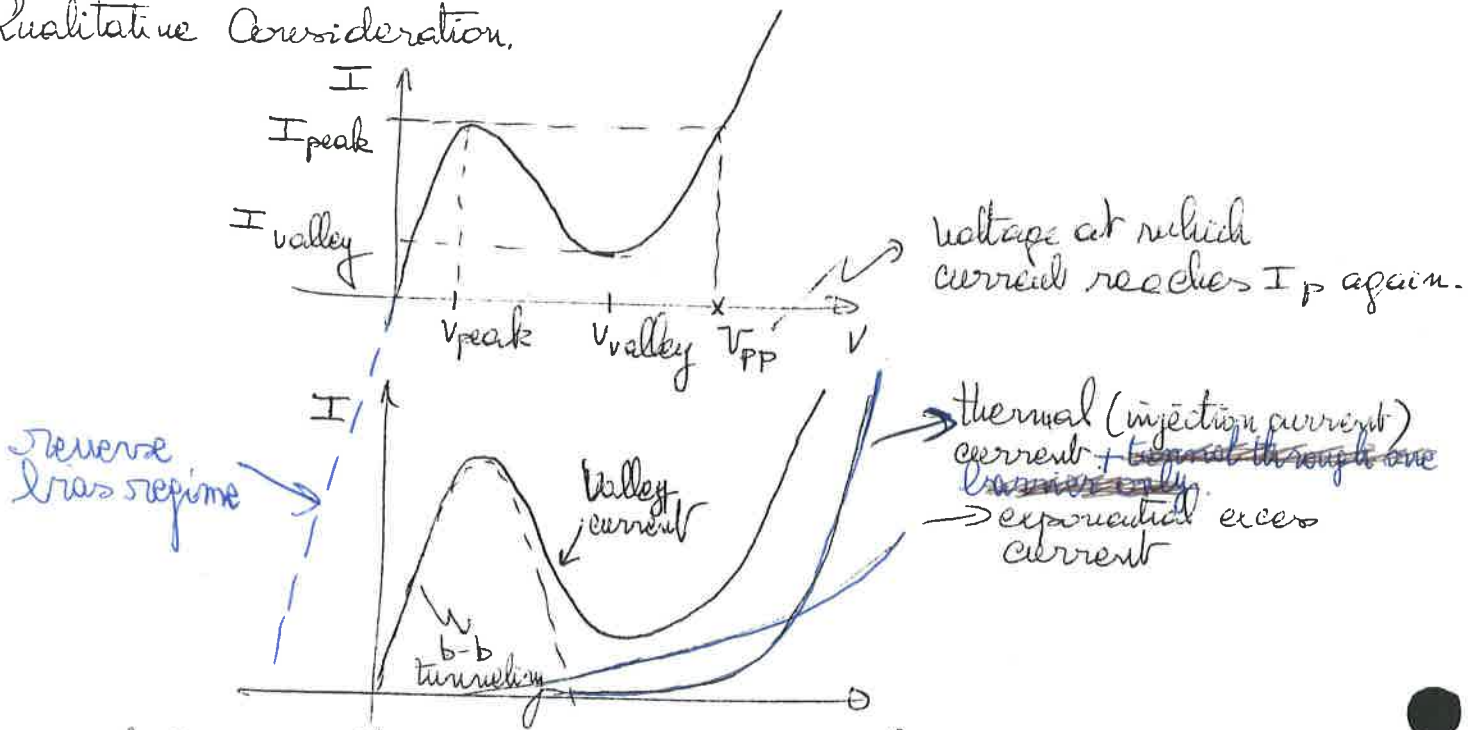 Qualitative Consideration.
I
I peak
I valley
V peak
V valley
V PP
V
voltage at which
current reaches I p again.
I
reverse
bias regime
Valley
current
b-b
tunneling
thermal (injection current)
current + tunnel through one
barrier only.
exponential exces
current